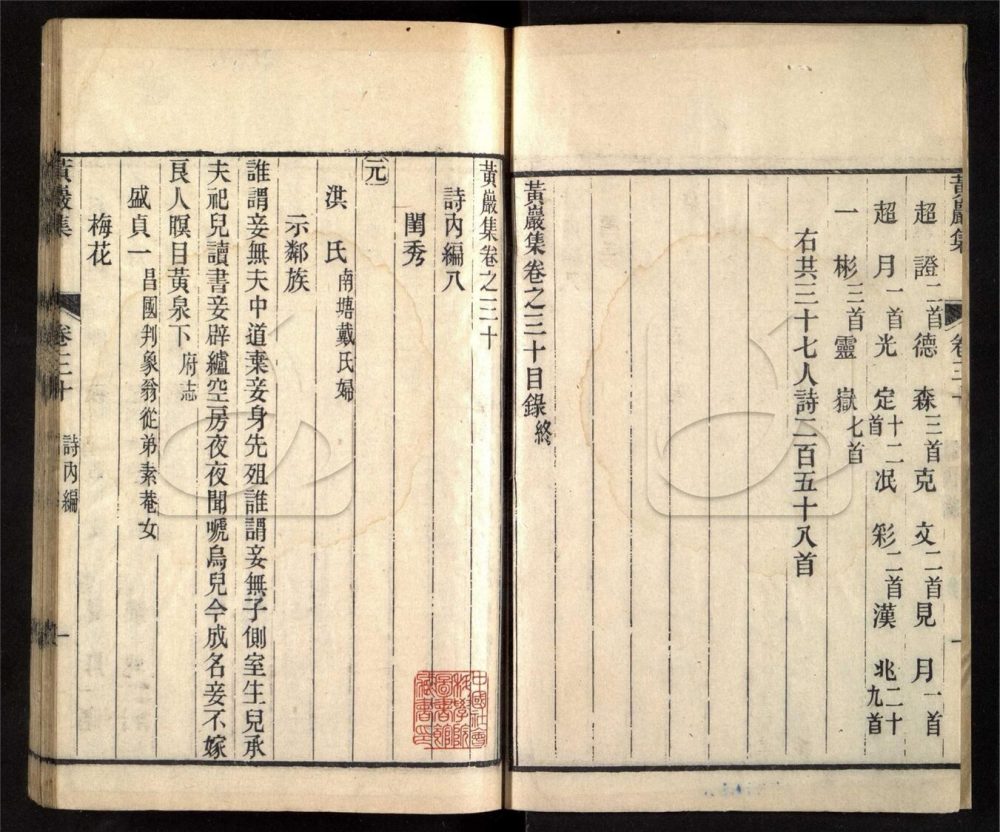 黃巖集 卷三十 一
超證二首 德森三首 克文二首 見月一首
超月一首 光定十二首 泯彩二首 漢兆二十九首
一彬三首 靈嶽七首
右共三十七人詩二百五十八首
黃巖集卷之三十目錄終
黃巖集卷之三十
詩內編八
閨秀
元
洪氏南塘戴氏婦
示鄰族
誰謂妾無夫中道棄妾身先殂誰謂妾無子側室生兒承
夫祀兒讀書妾辟纑空房夜夜聞嗁烏兒今成名妾不嫁
良人瞑目黃泉下府志
盛貞一昌國判象翁從弟素菴女
梅花
黃巖集 卷三十 詩內編 一
中國社會
科學院
圖書館
藏書印